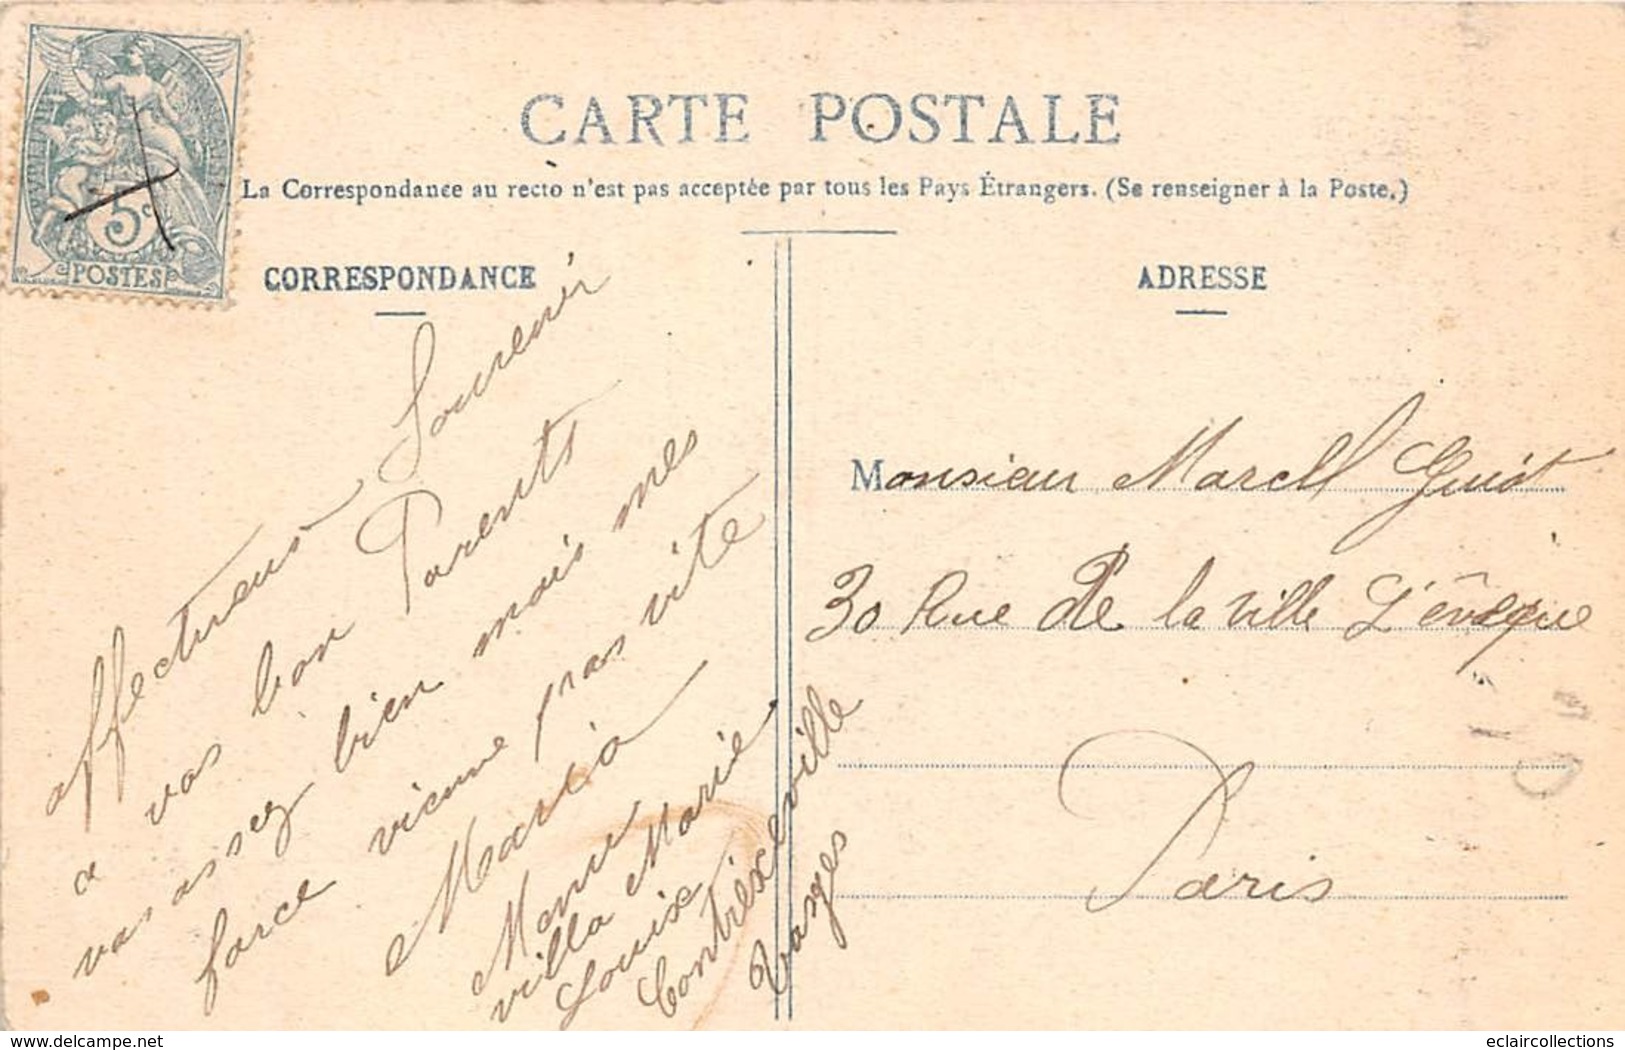 CARTE POSTALE
La Correspondance au recto n'est pas acceptée par tous les Pays Étrangers. (Se renseigner à la Poste.)
CORRESPONDANCE
ADRESSE
5c
POSTES
affectueux Souvenir
a vos bon Parents
vas assez bien mais mes
force vienne pas vite
Maria
villa Marie
Louise
Contrexéville
Vosges
Monsieur Marcel Guiot
30 Rue De la ville L'évèque
Paris
eclaircollections